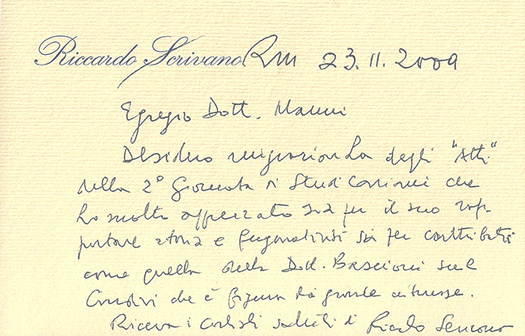 Riccardo Scrivano RM 23.11.2009
Egregio Dott. Manni
Desidero ringraziarLa degli "Atti"
della 2° Giornata di Studi che
ho molto apprezzato sia per il suo
sia per contributi
come quello della Dott. Bascioni sul
Condivi che è figura di grande interesse.
Riceva i cordiali saluti di Riccardo Scrivano